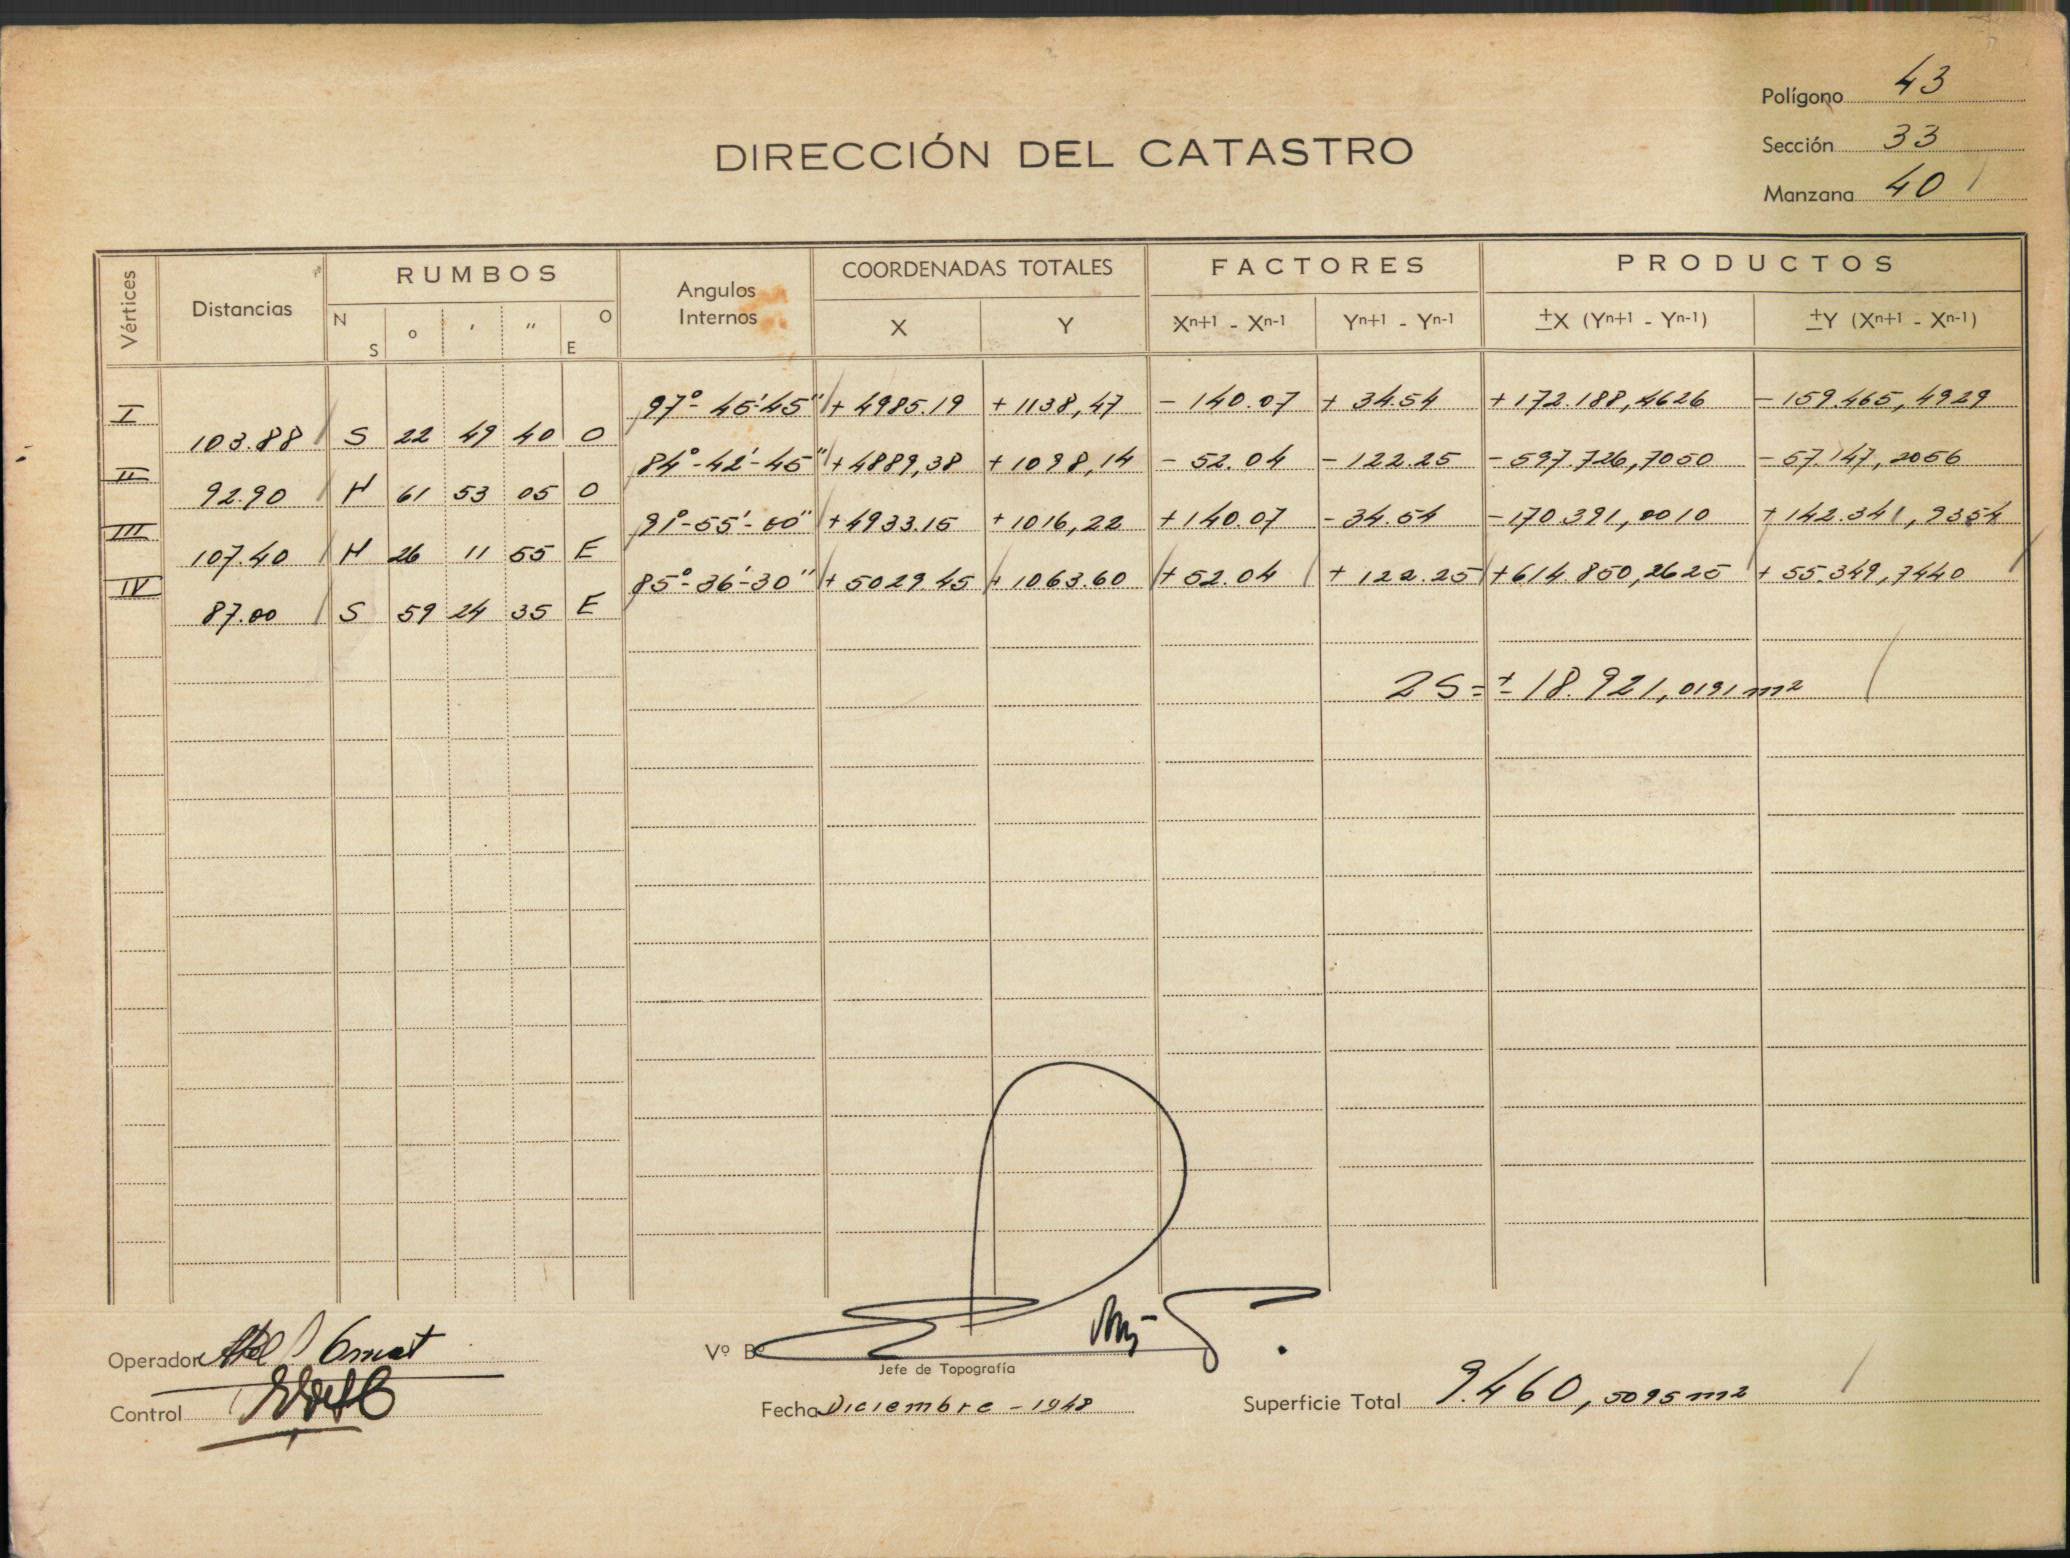 Polígono 43
DIRECCIÓN DEL CATASTRO
Sección 33
Manzana 40
Vértices Distancias RUMBOS Angulos Internos COORDENADAS TOTALES FACTORES PRODUCTOS
N S o ′ ″ O E X Y Xⁿ⁺¹ - Xⁿ⁻¹ Yⁿ⁺¹ - Yⁿ⁻¹ ±X (Yⁿ⁺¹ - Yⁿ⁻¹) ±Y (Xⁿ⁺¹ - Xⁿ⁻¹)
I 97°-45'-45" + 4985.19 + 1138,47 - 140.07 + 34.54 + 172.188,4626 - 159.465,4929
103.88 S 22 49 40 O
II 84°-42'-45" + 4889,38 + 1098,14 - 52.04 - 122.25 - 597.726,7050 - 57.147,2056
92.90 N 61 53 05 O
III 91°-55'-00" + 4933.15 + 1016,22 + 140.07 - 34.54 - 170.391,0010 + 142.341,9354
107.40 N 26 11 55 E
IV 85°-36'-30" + 5029.45 + 1063.60 + 52.04 + 122.25 + 614.850,2625 + 55.349,7440
87.00 S 59 24 35 E
2S = ± 18.921,0191 m2
Operador
Vº Bº
Jefe de Topografía
Control
Fecha Diciembre - 1948
Superficie Total 9.460,5095 m2